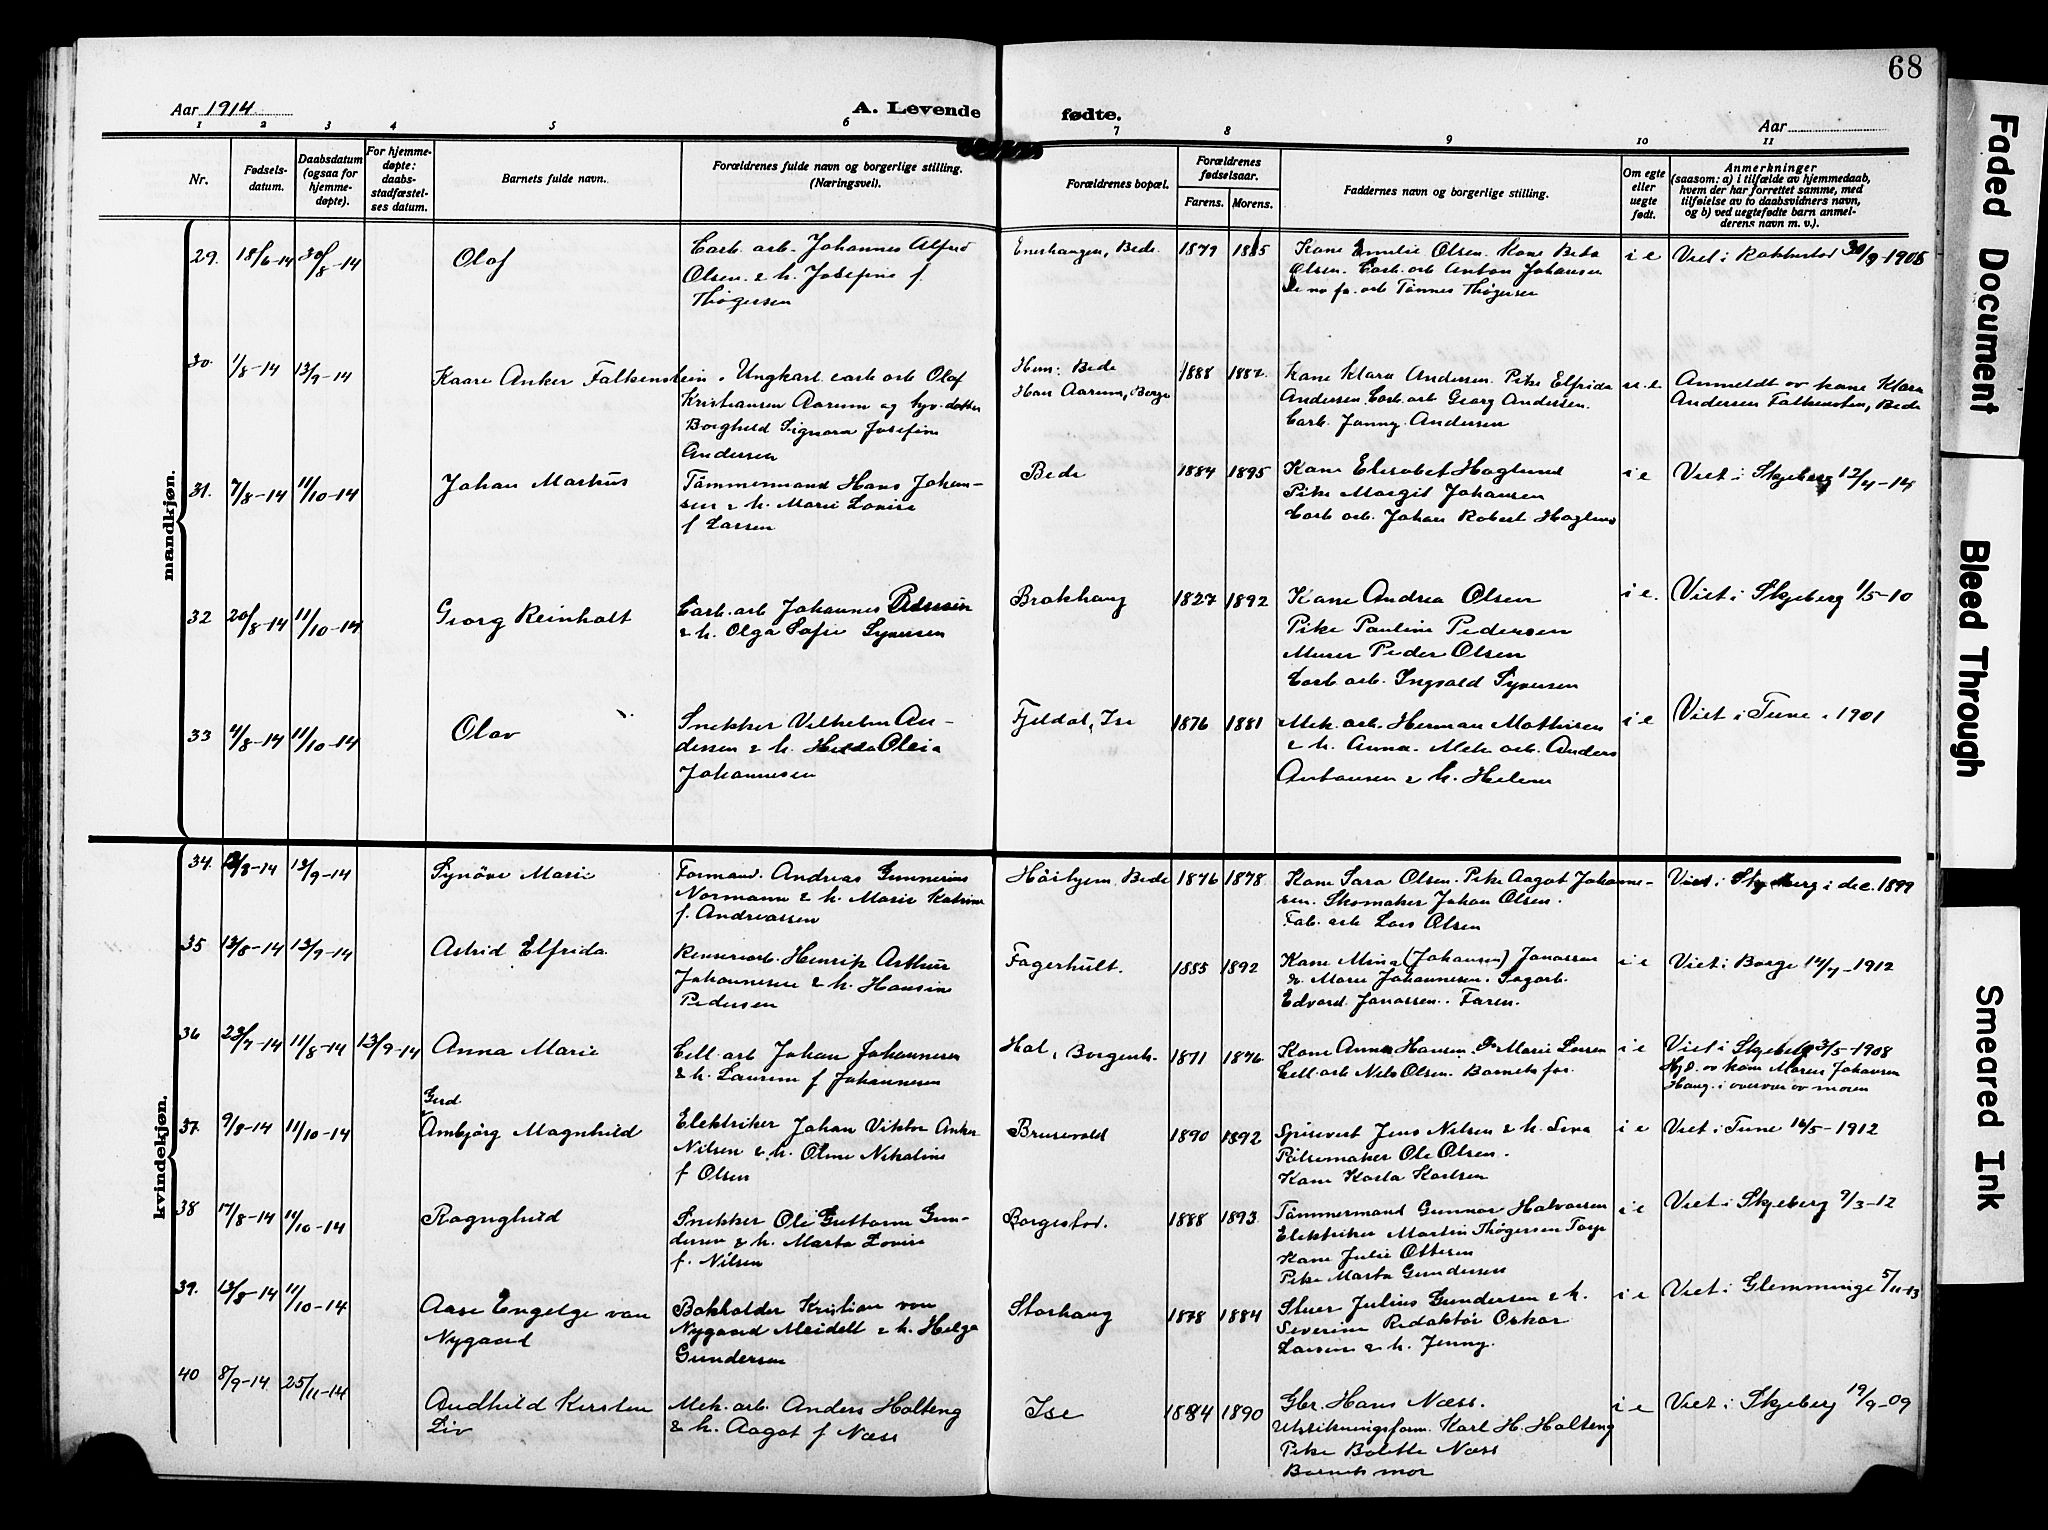 68
Aar 1914
A. Levende fødte.
Aar
1 2 3 4 5 6 7 8 9 10 11
Nr.
Fødselsdatum.
Daabsdatum (ogsaa for hjemmedøpte).
For hjemmedøpte: daabsstadfæstelses datum.
Barnets fulde navn.
Forældrenes fulde navn og borgerlige stilling. (Næringsvei).
Forældrenes bopæl.
Forældrenes fødselsaar.
Farens. Morens.
Faddernes navn og borgerlige stilling.
Om egte eller uegte født.
Anmerkninger
(saasom: a) i tilfælde av hjemmedaab,
hvem der har forrettet samme, med
tilføielse av to daabsvidners navn,
og b) ved uegtefødte barn anmel-
derens navn m. v.).
mandkjøn.
29. 18/6-14 30/8-14 Olof
Carb. arb. Johannes Alfred
Olsen & h. Josefine f.
Thøgersen
Enerhaugen, Bede 1879 1885
Kone Emelie Olsen. Kone Beta
Olsen. Carb. arb Anton Johansen
arb Tønnes Thøgersen
i e Viet i Rakkestad 30/9-1908
30. 1/8-14 13/9-14 Kaare Anker Falkenstein.
Ungkarl carb. arb Olaf
Kristiansen Aarum og
Borghild Signora Josefine
Andersen
Hun: Bede
Han Aarum, Borge 1888 1882
Kone Klara Andersen. Pike Elfrida
Andersen. Carb. arb Georg Andersen.
Carb. Jonny Andersen
u. e Anmeldt ov kone Klara
Andersen Falkensten, Bede
31. 7/8-14 11/10-14 Johan Markus
Tømmermand Hans Johan-
sen & h. Marie Lovise
f Larsen
Bede 1884 1895
Kone Elisabet Hoglund
Pike Margit Johansen
Carb arb. Johan Robert Hoglund
i e Viet i Skjeberg 12/4-14
32 20/8-14 11/10-14 Georg Reinholt
Carb. arb Johannes Pedersen
& h. Olga Sofie Syversen
Brakhaug 1827 1892
Kone Andrea Olsen
Pike Pauline Pedersen
Murer Peder Olsen
Carb arb. Ingvald Syversen
i e. Viet i Skjeberg 1/5-10
33 4/8-14 11/10-14 Olav
Snekker Vilhelm An-
dersen & h. Hilda Oleia
Johannesen
Fjeldal, Ise 1876 1881
Mek. arb. Herman Mathisen
& h. Anna. Mek arb. Anders
Anthonsen & h. Helene
i e Viet i Tune. 1901
kvindekjøn.
34. 12/8-14 13/9-14 Synøve Marie
Formand. Andreas Gunnerius
Normann & h. Marie Katrine
f. Andreassen
Høihjem Bede 1876 1878
Kone Sara Olsen. Pike Aagot Johanne-
sen. Skomaker Johan Olsen.
Fab. arb Lars Olsen
Viet i Skjeberg i dec. 1899
35 13/8-14 13/9-14 Astrid Elfrida
Renseriarb. Henrik Arthur
Johannesen & h. Hansine
Pedersen
Fagerhult. 1885 1892
Kone Mina (Johansen) Jonassen
& Marie Johannesen. Sagarb.
Edvard Jonassen. Faren.
i e Viet i Borge 14/4-1912
36 23/7-14 11/8-14 13/9-14 Anna Marie
Cell. arb Johan Johannesen
& h. Laurine f Johannesen
Hol, Borgenh. 1871 1876
Kone Anna Hansen. Marie Larsen
Cell. arb Nils Olsen. Barnets far.
i e Viet i Skjeberg 3/5-1908
Hjd. ov kone Maren Johansen
Haug. i overvær ov moren
37. 9/8-14 11/10-14 Gerd
Ambjørg Magnhild
Elektriker Johan Viktor Anker
Nilsen & h. Oline Nikoline
f Olsen
Brusevold 1890 1892
Spisevert Jens Nilsen & h. Lina
Pølsemaker Ole Olsen.
Kone Karla Karlsen
i e Viet i Tune 16/5-1912
38 17/8-14 11/10-14 Ragnghild
Snekker Ole Guttorm Gun-
dersen & h. Marta Lovise
f. Nilsen
Borgestad. 1888 1893
Tømmermand Gunnar Halvorsen
Elektriker Martin Thøgersen Torp
Kone Julie Ottesen
Pike Marta Gundersen
i e Viet i Skjeberg 9/3-12
39. 13/8-14 11/10-14 Aase Engelge van
Nygaard
Bokholder Kristian von
Nygaard Meidell & h. Helga
Gundersen
Storhaug 1878 1884
Stuer Julius Gundersen & h.
Severine Redaktør Oskar
Larsen & h. Jenny.
i e Viet i Glemminge 5/11-13
40 8/9-14 25/11-14 Audhild Kirsten
Liv
Mek. arb. Anders Holteng
& h. Aagot f Næss
Ise 1884 1890
Gbr. Hans Næss.
Utstikningsform. Karl H. Holteng
Pike Bolette Næss
Barnets mor
i e Viet i Skjeberg 19/9-09
Faded Document
Bleed Through
Smeared Ink